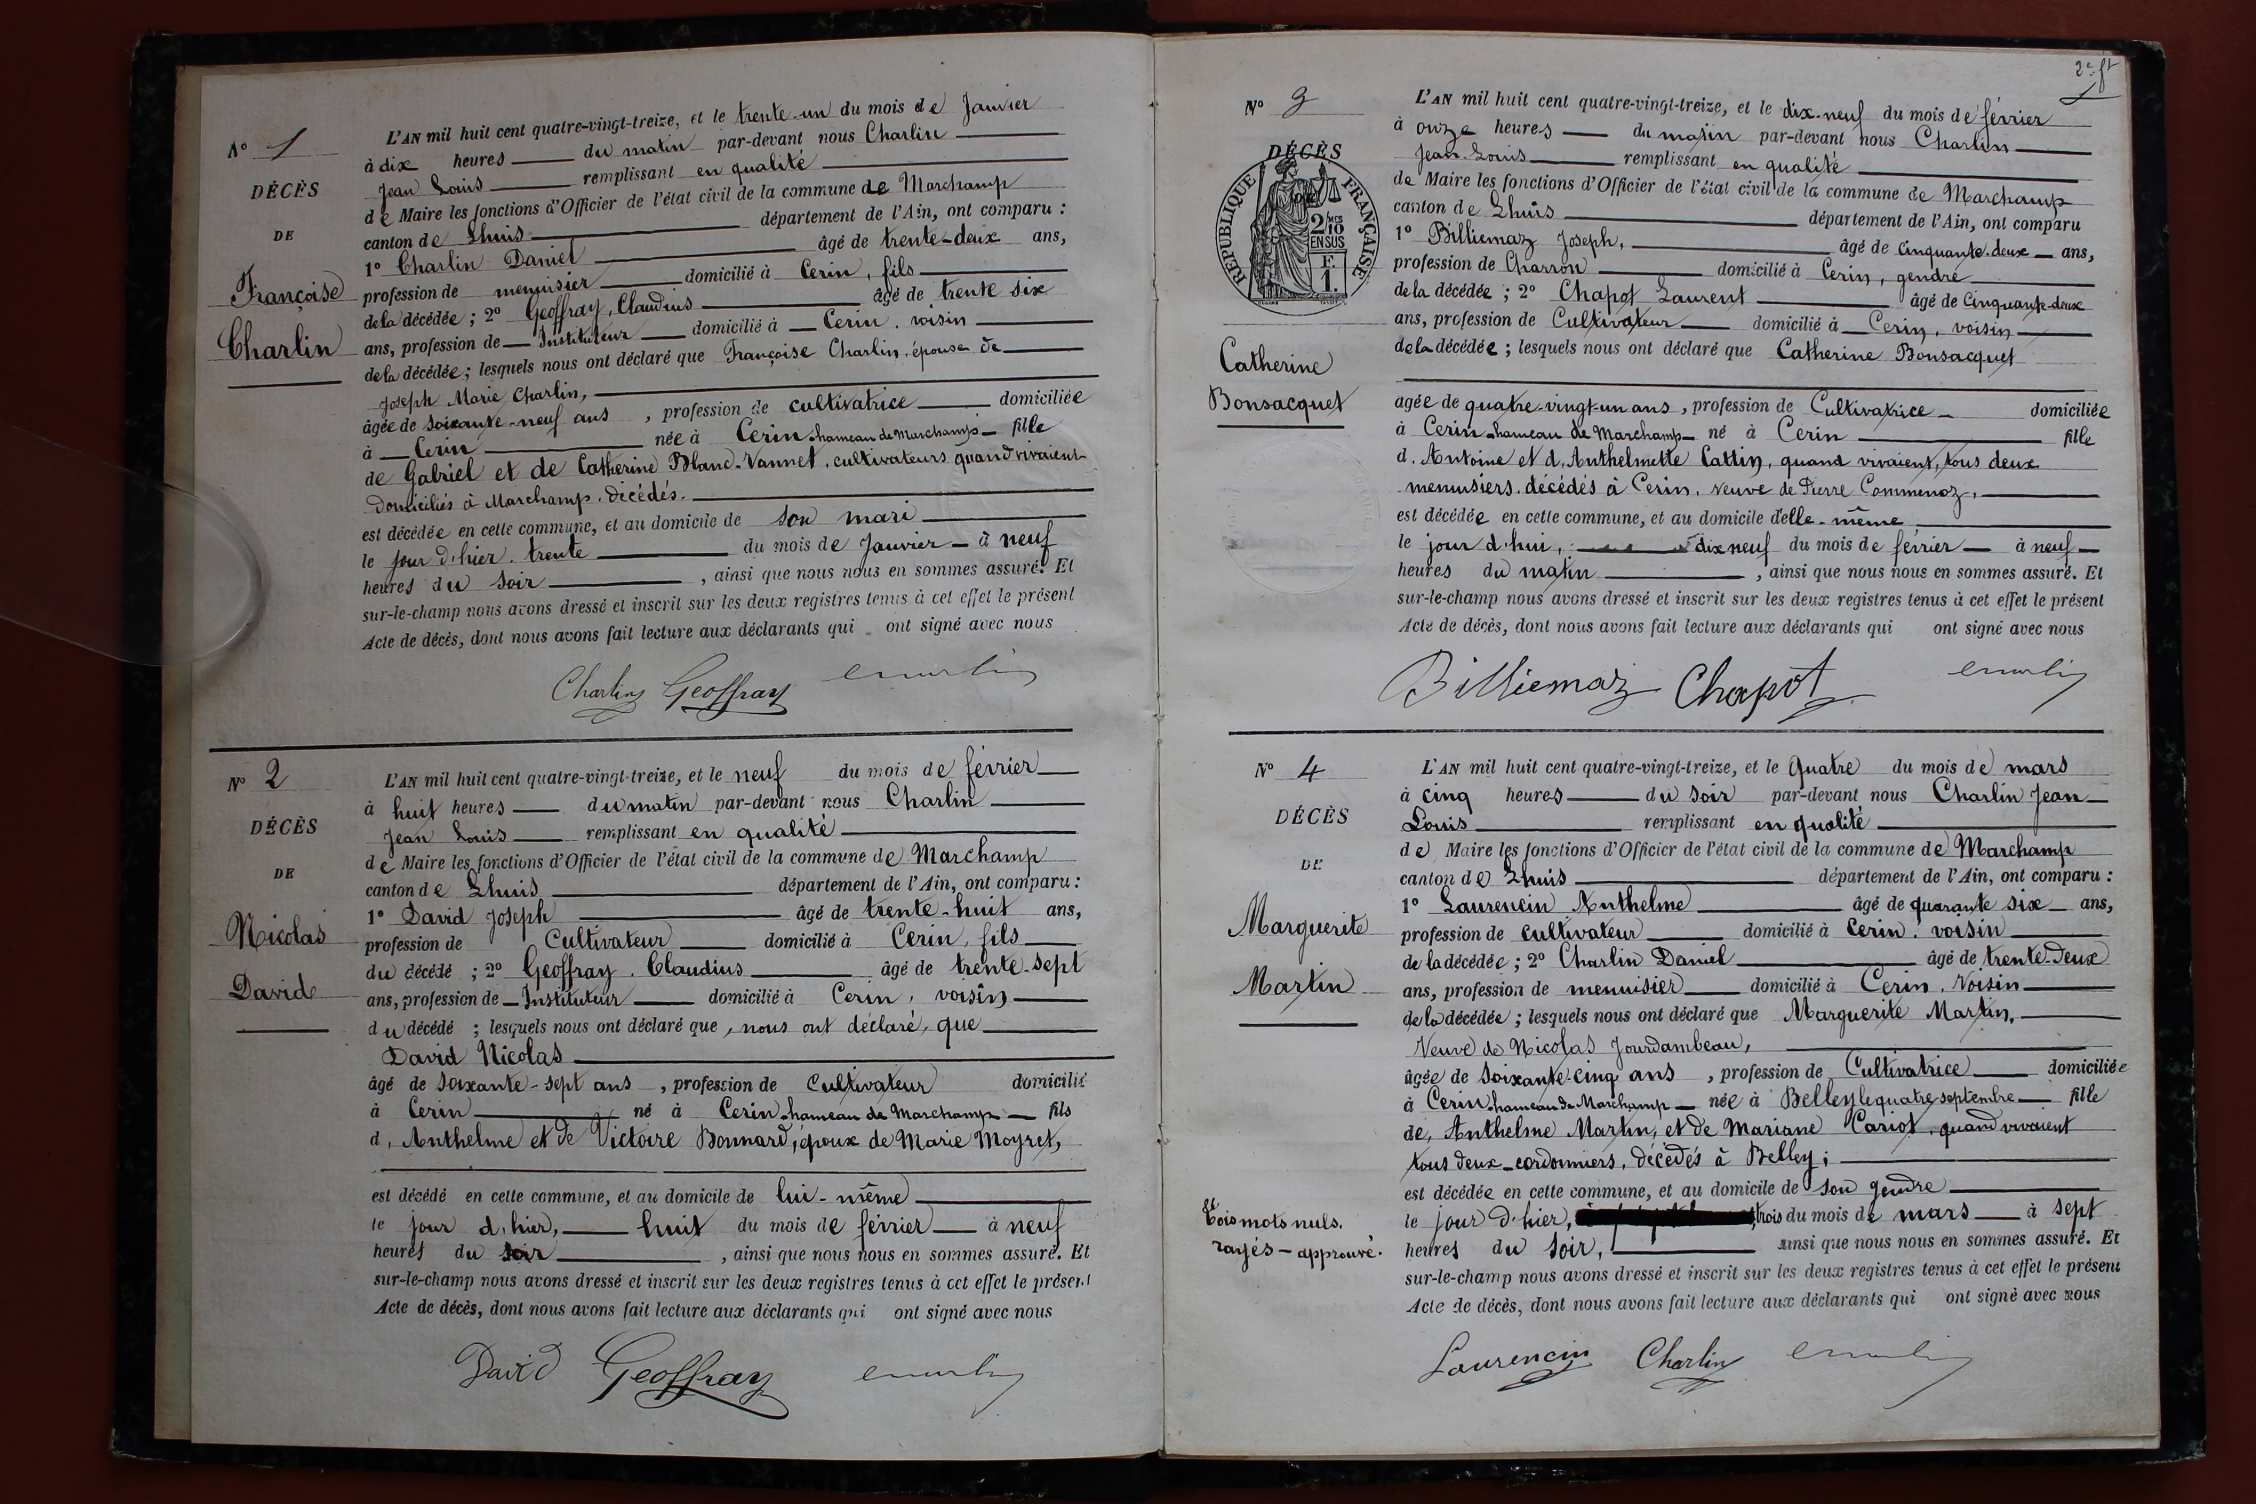 N° 1
DÉCÈS
DE
Françoise
Charlin
L'AN mil huit cent quatre-vingt-treize, et le trente-un du mois de Janvier
à dix heures du matin par-devant nous Charlin
Jean Louis remplissant en qualité
de Maire les fonctions d'Officier de l'état civil de la commune de Marchamp
canton de Lhuis département de l'Ain, ont comparu :
1° Charlin Daniel âgé de trente-deux ans,
profession de menuisier domicilié à Cerin, fils
de la décédée ; 2° Geoffray, Claudius âgé de trente six
ans, profession de Instituteur domicilié à Cerin, voisin
de la décédée ; lesquels nous ont déclaré que Françoise Charlin, épouse de
Joseph Marie Charlin,
âgée de soixante-neuf ans, profession de cultivatrice domiciliée
à Cerin née à Cerin hameau de Marchamp fille
de Gabriel et de Catherine Blanc-Vannet, cultivateurs quand vivaient
domiciliés à Marchamp, décédés.
est décédée en cette commune, et au domicile de son mari
le jour d'hier, trente du mois de Janvier à neuf
heures du soir, ainsi que nous nous en sommes assuré. Et
sur-le-champ nous avons dressé et inscrit sur les deux registres tenus à cet effet le présent
Acte de décès, dont nous avons fait lecture aux déclarants qui ont signé avec nous
Charlin Geoffray
N° 2
DÉCÈS
DE
Nicolas
David
L'AN mil huit cent quatre-vingt-treize, et le neuf du mois de février
à huit heures du matin par-devant nous Charlin
Jean Louis remplissant en qualité
de Maire les fonctions d'Officier de l'état civil de la commune de Marchamp
canton de Lhuis département de l'Ain, ont comparu :
1° David Joseph âgé de trente-huit ans,
profession de Cultivateur domicilié à Cerin, fils
du décédé ; 2° Geoffray, Claudius âgé de trente-sept
ans, profession de Instituteur domicilié à Cerin, voisin
du décédé ; lesquels nous ont déclaré que, nous ont déclaré, que
David Nicolas
âgé de soixante-sept ans, profession de Cultivateur domicilié
à Cerin né à Cerin hameau de Marchamp fils
d'Anthelme et de Victoire Bonnard, époux de Marie Moyret,
est décédé en cette commune, et au domicile de lui-même
le jour d'hier, huit du mois de février à neuf
heures du soir, ainsi que nous nous en sommes assuré. Et
sur-le-champ nous avons dressé et inscrit sur les deux registres tenus à cet effet le présent
Acte de décès, dont nous avons fait lecture aux déclarants qui ont signé avec nous
David Geoffray
2e ft
N° 3
DÉCÈS
RÉPUBLIQUE FRANÇAISE
2/10 MES
EN SUS
F.
1.
Catherine
Bonsacquet
L'AN mil huit cent quatre-vingt-treize, et le dix-neuf du mois de février
à onze heures du matin par-devant nous Charlin
Jean-Louis remplissant en qualité
de Maire les fonctions d'Officier de l'état civil de la commune de Marchamp
canton de Lhuis département de l'Ain, ont comparu
1° Billiemaz Joseph, âgé de cinquante-deux ans,
profession de Charron domicilié à Cerin, gendre
de la décédée ; 2° Chapot Laurent âgé de cinquante-deux
ans, profession de Cultivateur domicilié à Cerin, voisin
de la décédée ; lesquels nous ont déclaré que Catherine Bonsacquet
agée de quatre-vingt-un ans, profession de Cultivatrice domiciliée
à Cerin hameau de Marchamp né à Cerin fille
d'Antoine et d'Anthelmette Cattin, quand vivaient, tous deux
menuisiers, décédés à Cerin, veuve de Pierre Commenoz,
est décédée en cette commune, et au domicile d'elle-même
le jour d'hui, dix neuf du mois de février à neuf
heures du matin, ainsi que nous nous en sommes assuré. Et
sur-le-champ nous avons dressé et inscrit sur les deux registres tenus à cet effet le présent
Acte de décès, dont nous avons fait lecture aux déclarants qui ont signé avec nous
Billiemaz Chapot
N° 4
DÉCÈS
DE
Marguerite
Martin
L'AN mil huit cent quatre-vingt-treize, et le quatre du mois de mars
à cinq heures du soir par-devant nous Charlin Jean
Louis remplissant en qualité
de Maire les fonctions d'Officier de l'état civil de la commune de Marchamp
canton de Lhuis département de l'Ain, ont comparu :
1° Laurencin Anthelme âgé de quarante six ans,
profession de cultivateur domicilié à Cerin, voisin
de la décédée ; 2° Charlin Daniel âgé de trente-deux
ans, profession de menuisier domicilié à Cerin, voisin
de la décédée ; lesquels nous ont déclaré que Marguerite Martin,
Veuve de Nicolas Jourdambeau,
âgée de soixante-cinq ans, profession de Cultivatrice domiciliée
à Cerin hameau de Marchamp née à Belley le quatre septembre fille
de, Anthelme Martin, et de Mariane Cariot, quand vivaient
tous deux cordonniers, décédés à Belley ;
est décédée en cette commune, et au domicile de son gendre
le jour d'hier, trois du mois de mars à sept
heures du soir, ainsi que nous nous en sommes assuré. Et
sur-le-champ nous avons dressé et inscrit sur les deux registres tenus à cet effet le présent
Acte de décès, dont nous avons fait lecture aux déclarants qui ont signé avec nous
mots nuls,
rayés - approuvé.
Laurencin Charlin